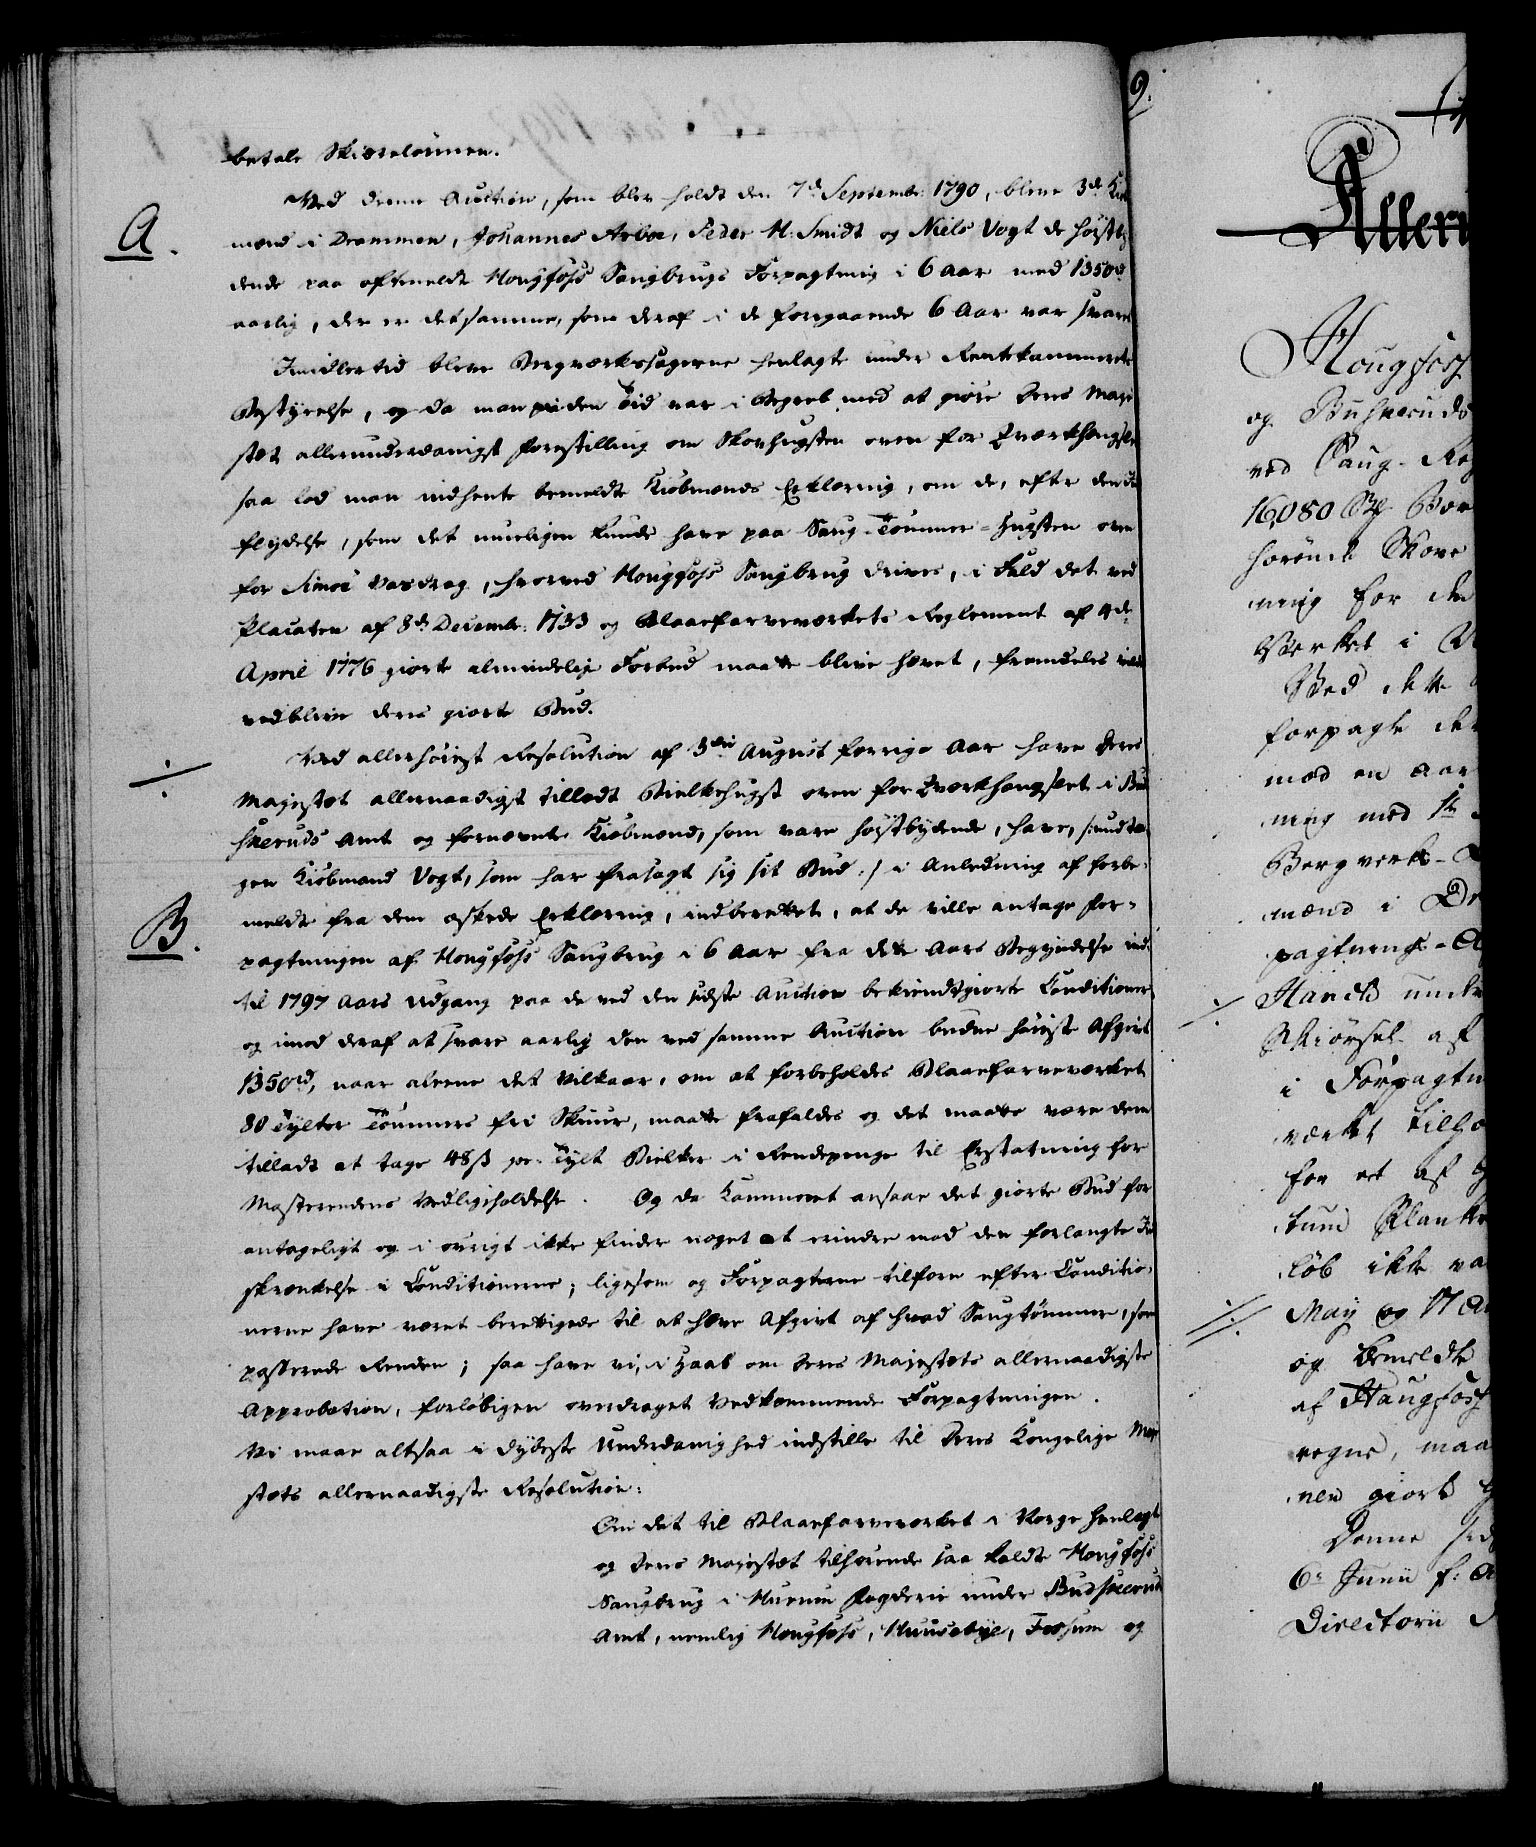 betale Skiverelønnen.
A.
Ved denne Auction, som blev holdt den 7de Septembr: 1790, bleve 3de Kiøb
mænd i Drammen, Johannes Arboe, Peder M. Smidt og Niels Vogt de høistby
dende paa oftmeldte Hougfoss Saugbrugs Forpagtning i 6 Aar med 1350rd
aarlig, der er det samme, som deraf i de foregaaende 6 Aar var svaret
Imidlertid bleve Bergværkssagerne henlagte under Rentekammerets
Bestyrelse, og da man paa den Tid var i Begreb med at giøre Deres Maje
stæt allerunderdanigst Forestilling om Skovhugsten oven for Qværkhongslet
saa lod man indhente bemeldte Kiøbmænds Erklæring, om de, efter den Ind
flydelse, som det mueligen kunde have paa Saug-Tømmer-Hugsten oven
for Simoe Vasdrag, hvorved Hougfoss Saugbrug drives, i Fald det ved
Placaten af 8de Decembr: 1733 og Blaaefarveværkets Reglement af 4de
April 1776 giorte almindelig Forbud maatte blive hævet, fremdeles vilde
vedblive deres giorte Bud.
Ved allerhøiest Resolution af 3die August forrige Aar have Deres
Majestæt allernaadigst tilladt Bielkehugst oven for Qværkhongslet i Bud
skeruds Amt og fornævnte Kiøbmænd, som vare høistbydende, have, /:undta-
gen Kiøbmand Vogt, som har frasagt sig sit Bud:/ i Anledning af forbe-
B.
meldte fra dem æskede Erklæring, indberettet, at de ville antage For-
pagtningen af Hougfoss Saugbrug i 6 Aar fra dette Aars Begyndelse ind-
til 1797 Aars Udgang paa de ved den sidste Auction bekiendtgiorte Conditioner
og imod deraf at svare aarlig den ved samme Auction budne høieste Afgivt
1350rd, naar alene det Vilkaar, om at forbeholdes Blaaefarveværket
80 Tylter Tømmers fri Skuur, maatte frafaldes og det maatte være dem
tilladt at tage 48ß pr. Tylt Bielker i Rendepenge til Erstatning for
Masterendens Vedligeholdelse. Og da Kammeret ansaae det giorte Bud for
antageligt og i øvrigt ikke finder noget at erindre mod den forlangte Ind
skrænkelse i Conditionerne; ligesom og Forpagterne tilforn efter Conditio-
nerne have været berettigede til at hæve Afgivt af hvad Saugtømmer, som
passerede Renden; saa have vi, i Haab om Deres Majestæts allernaadigste
Approbation, forløbigen overdraget Vedkommende Forpagtningen.
Vi maae altsaa i dybeste Underdanighed indstille til Deres Kongelige Maje
stæts allernaadigste Resolution:
Om det til Blaaefarveværket i Norge henlagt
og Deres Majestæt tilhørende saa kaldte Hougfoss
Saugbrug i Buskeruds Fogderie under Budskerud
Amt, nemlig Hougfoss, Huusebye, Fossum og
9.
Alleru
Hougfoss
og Buskeruds
ved Saug-Reg
16080
hørende Skove
ning for den
Værket i
Ved dette
forpagte der
mod en aar
ning med 1te
Bergverks-D
mænd i Dr
pagtnings-A
Hands under
Skiørsel af
i Forpagtn
værket tilhø
for et af
tum Planke
løb ikke va
May og 17 Au
og bemeldte
af Haugfoss
vegne, maa
nen giort
Denne sid
6te Junii f: A
Directorii